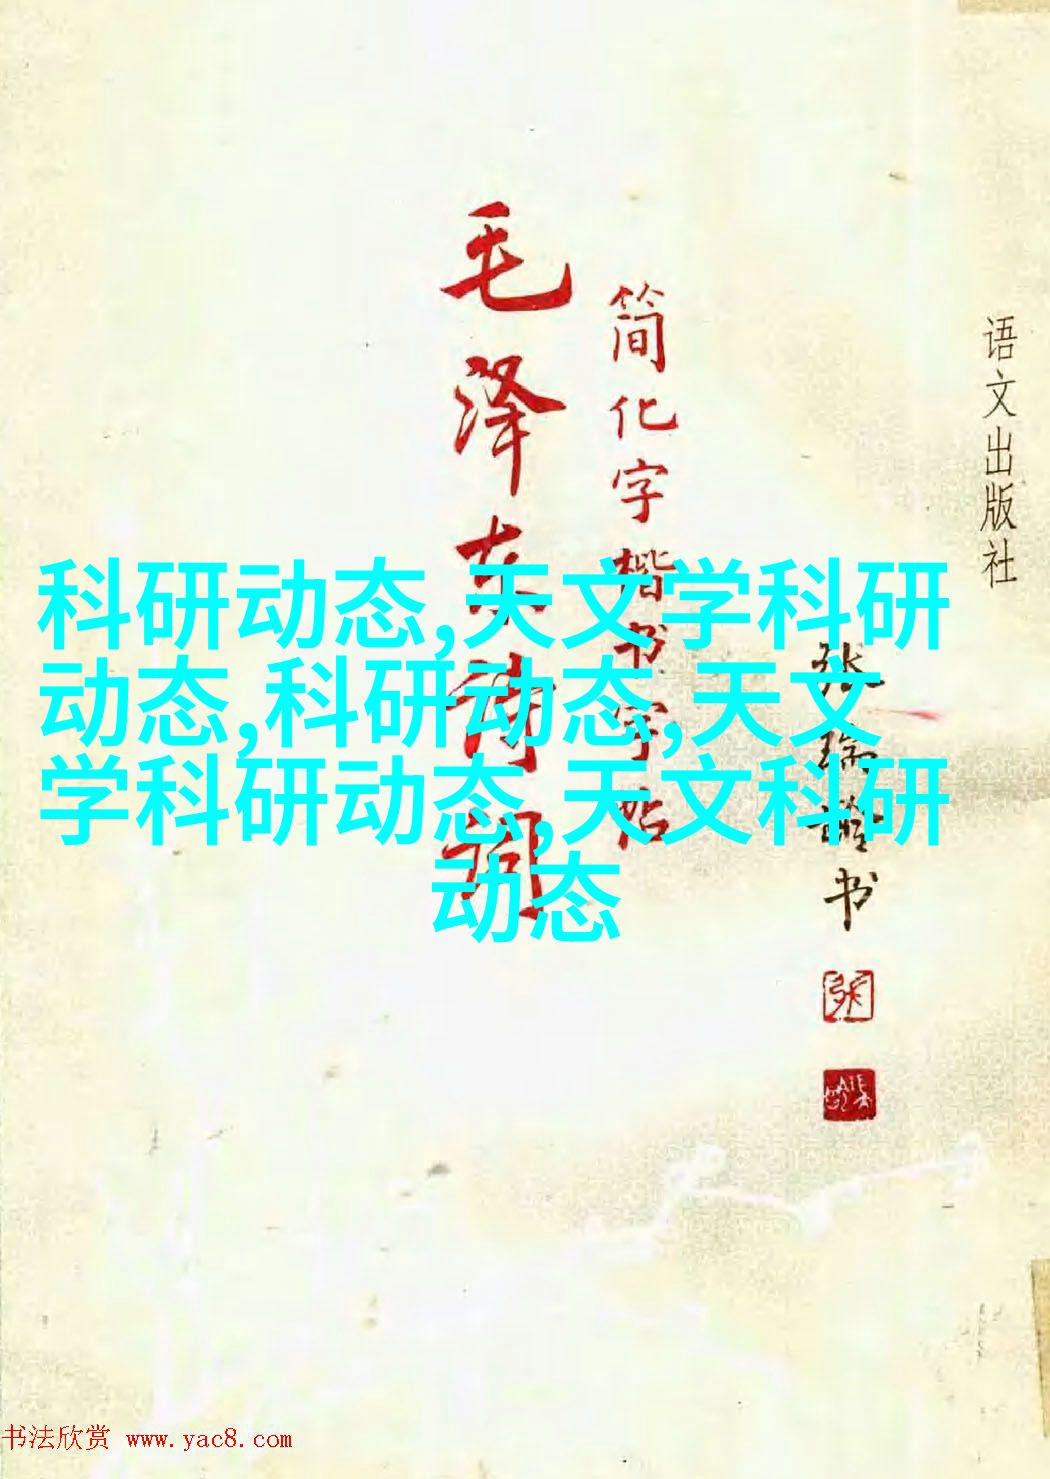 语文出版社
简化字楷书字帖
毛泽东诗词
张瑞龄书
科研动态,天文学科研
动态,科研动态,天文
学科研动态,天文科研
动态
书法欣赏 www.yac8.com